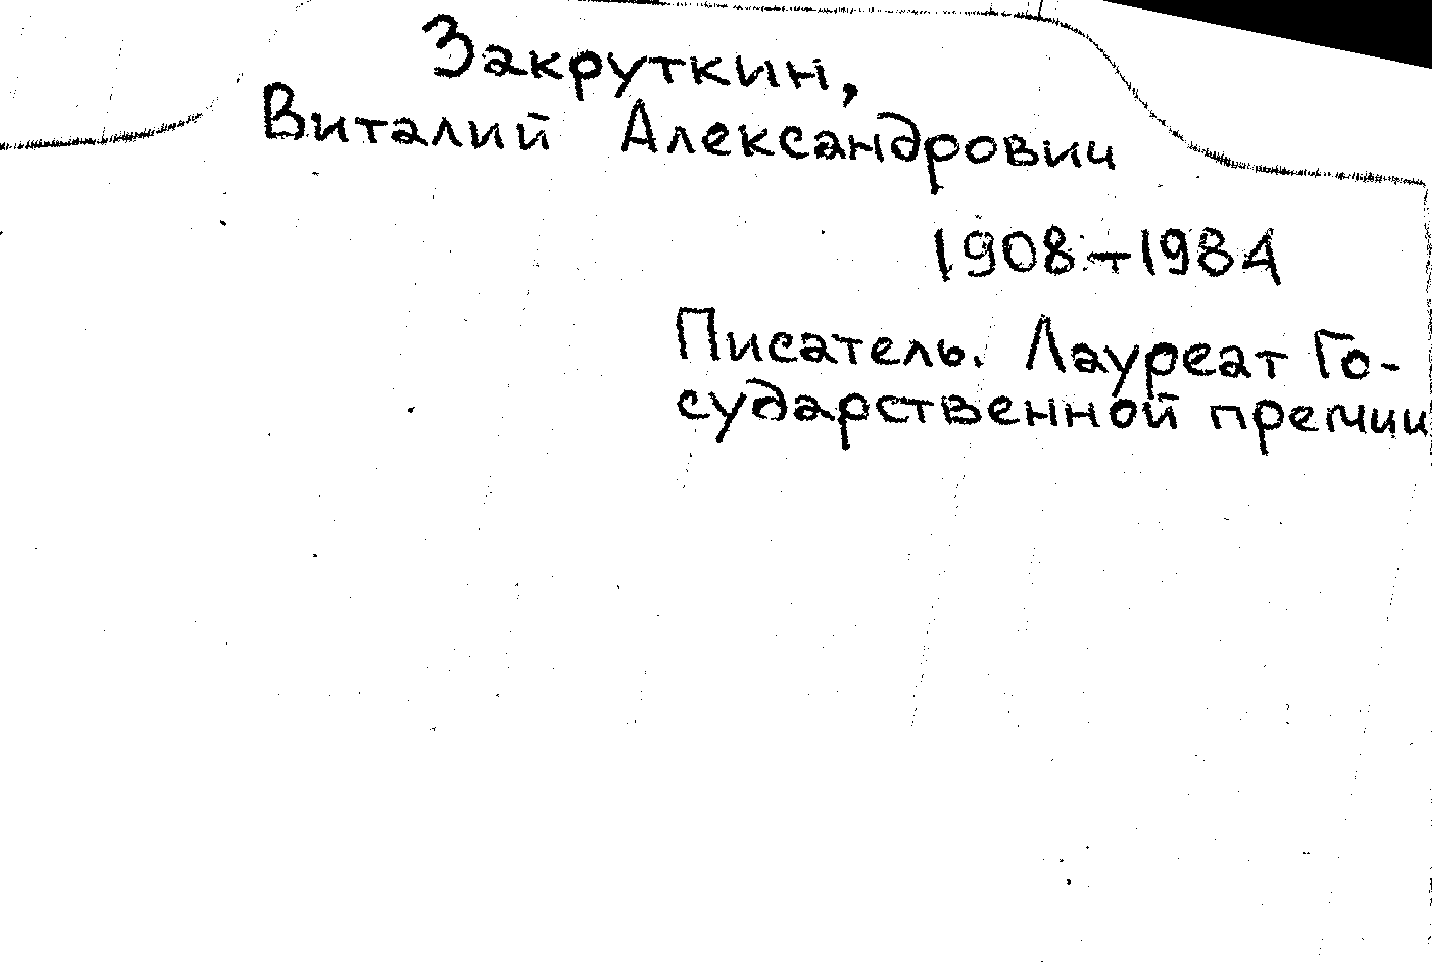 Закруткин,
Виталий Александрович
1908-1984
Писатель. Лауреат Го-
сударственной премии